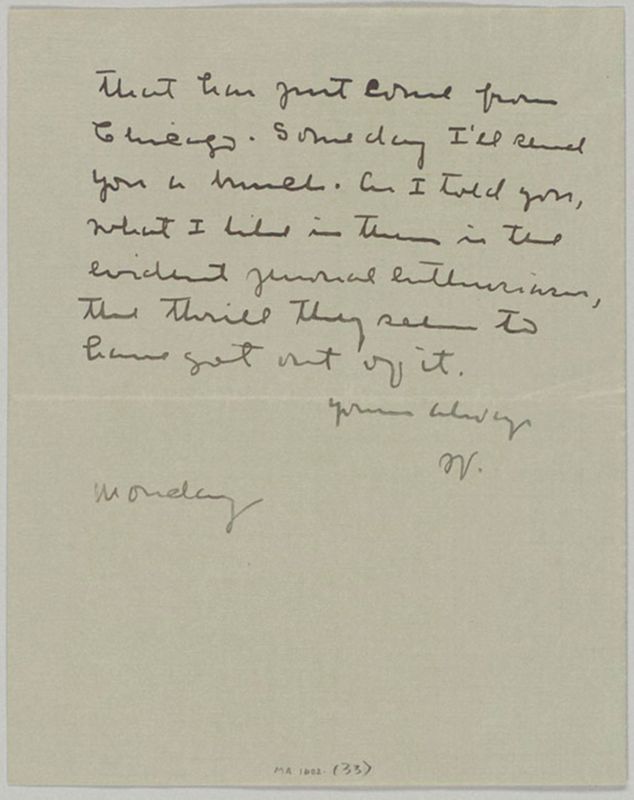 that has just come from
Chicago. Some day I'll send
you a bunch. As I told you,
what I like in them is the
evident personal enthusiasm,
the thrill they seem to
have got out of it.
Yours always
W.
Monday
MA 1602. (33)